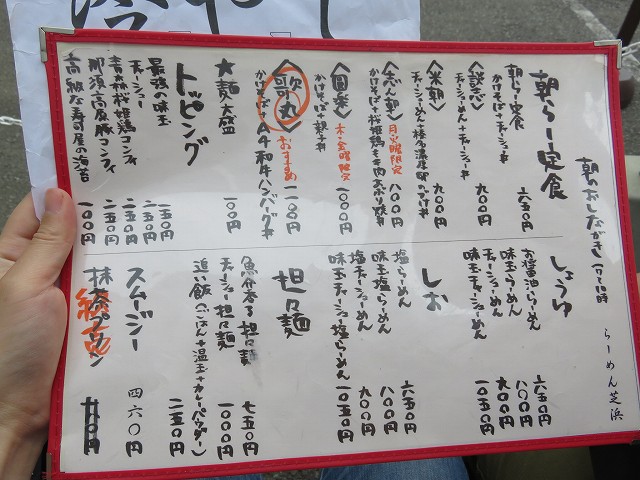 朝のおしながき 7〜10時
らーめん芝浜
朝らー定食
朝らー定食
かけそば+チャーシュー丼 六五〇円
〈談志〉
チャーシューめん+チャーシュー丼 九〇〇円
〈米朝〉
チャーシューめん+ 九〇〇円
〈志ん朝〉 月火曜限定
八〇〇円
〈圓楽〉 木・金曜限定
一〇〇〇円
〈歌丸〉 おすすめ
かけそば+A4和牛ハンバーグ丼 一一〇〇円
大麺大盛 一〇〇円
トッピング
最強の味玉 一五〇円
チャーシュー 二五〇円
青森桜姫鶏コンフィ 二五〇円
那須三元豚コンフィ 二五〇円
高級な寿司屋の海苔 一〇〇円
しょうゆ
お醤油らーめん 六五〇円
味玉らーめん 八〇〇円
チャーシューめん 九〇〇円
味玉チャーシューめん 一〇五〇円
しお
塩らーめん 六五〇円
味玉塩らーめん 八〇〇円
塩チャーシューめん 九〇〇円
味玉チャーシュー塩らーめん 一〇五〇円
担々麺
魚介香る担々麺 七五〇円
チャーシュー担々麺 一〇〇〇円
追い飯(ごはん+温玉+カレーパウダー) 二五〇円
スムージー 四六〇円
抹茶プリン